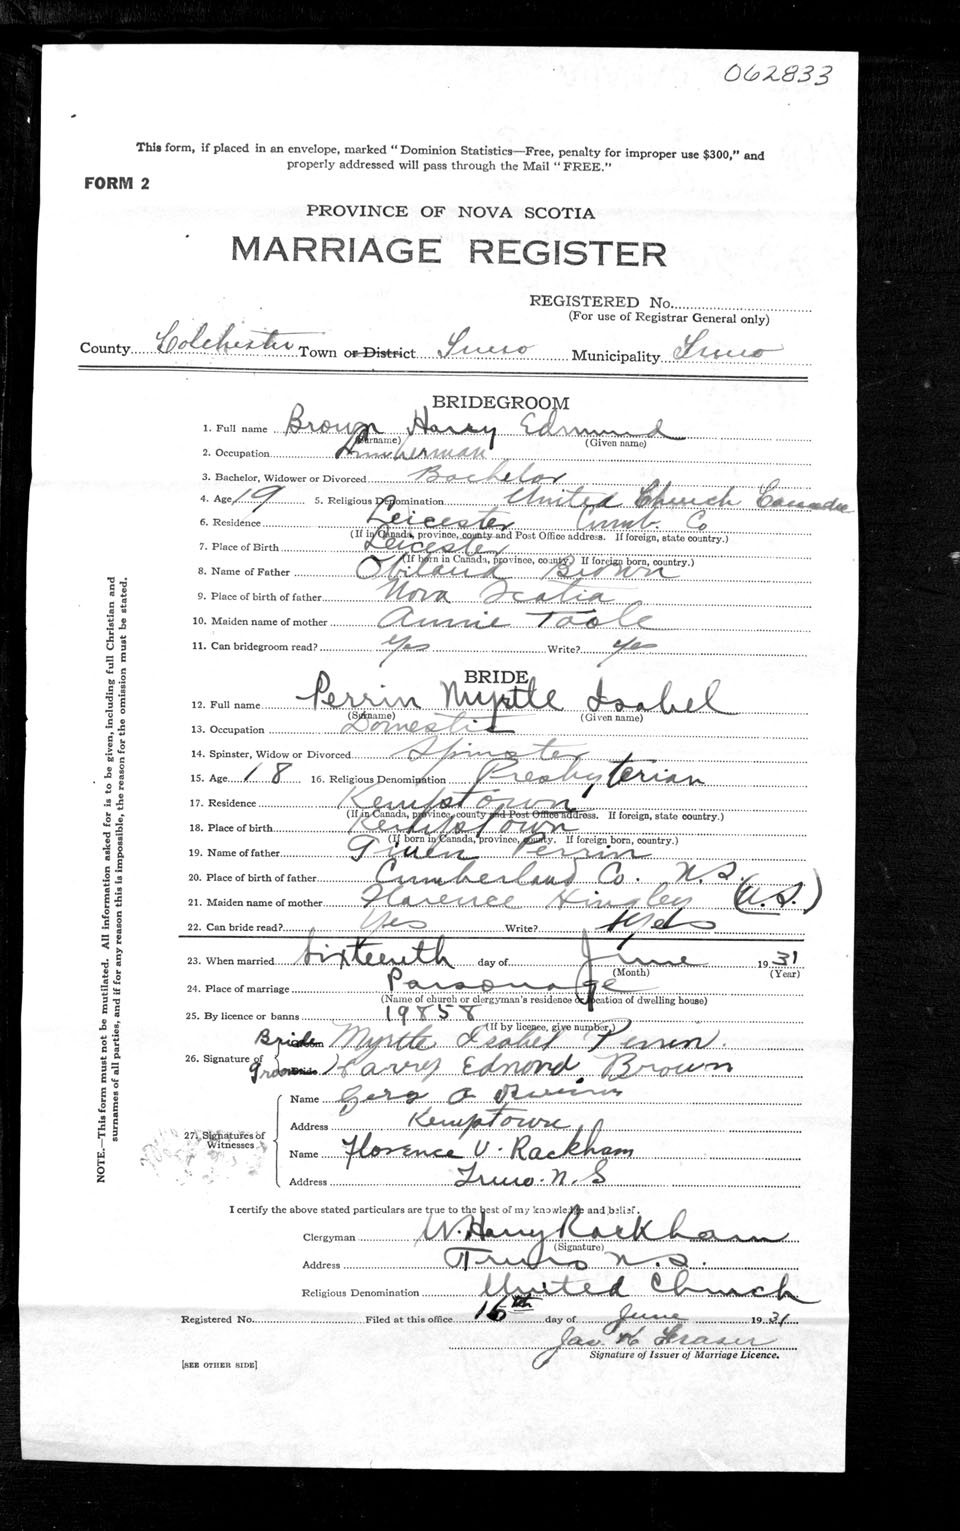 062833
This form, if placed in an envelope, marked "Dominion Statistics—Free, penalty for improper use $300," and
properly addressed will pass through the Mail "FREE."
FORM 2
PROVINCE OF NOVA SCOTIA
MARRIAGE REGISTER
REGISTERED No.
(For use of Registrar General only)
County Colchester Town or District Truro Municipality Truro
BRIDEGROOM
1. Full name Brown Harry Edmund
(Surname) (Given name)
2. Occupation Lumberman
3. Bachelor, Widower or Divorced Bachelor
4. Age 19 5. Religious Denomination United Church Canada
6. Residence Leicester Cumb. Co
(If in Canada, province, county and Post Office address. If foreign, state country.)
7. Place of Birth Leicester
(If born in Canada, province, county. If foreign born, country.)
8. Name of Father Brown
9. Place of birth of father Nova Scotia
10. Maiden name of mother Annie Toole
11. Can bridegroom read? Yes Write? Yes
BRIDE
12. Full name Perrin Myrtle Isabel
(Surname) (Given name)
13. Occupation Domestic
14. Spinster, Widow or Divorced Spinster
15. Age 18 16. Religious Denomination Presbyterian
17. Residence Kemptown
(If in Canada, province, county and Post Office address. If foreign, state country.)
18. Place of birth Kemptown
(If born in Canada, province, county. If foreign born, country.)
19. Name of father Perrin
20. Place of birth of father Cumberland Co. N.S.
21. Maiden name of mother Florence Hingley (N.S.)
22. Can bride read? Yes Write? Yes
23. When married Sixteenth day of June 1931
(Month) (Year)
24. Place of marriage Parsonage
(Name of church or clergyman's residence or location of dwelling house)
25. By licence or banns 19858
(If by licence, give number.)
Bride Myrtle Isabel Perrin.
26. Signature of
Groom Harry Edmond Brown
Name
Address Kemptown
27. Signatures of
Witnesses
Name Florence V. Rackham
Address Truro. N.S
I certify the above stated particulars are true to the best of my knowledge and belief.
Clergyman W. Harry Rackham
(Signature)
Address Truro N.S.
Religious Denomination United Church
Registered No. Filed at this office 16th day of June 1931
Jas. K Fraser
Signature of Issuer of Marriage Licence.
[SEE OTHER SIDE]
NOTE.—This form must not be mutilated. All information asked for is to be given, including full Christian and
surnames of all parties, and if for any reason this is impossible, the reason for the omission must be stated.